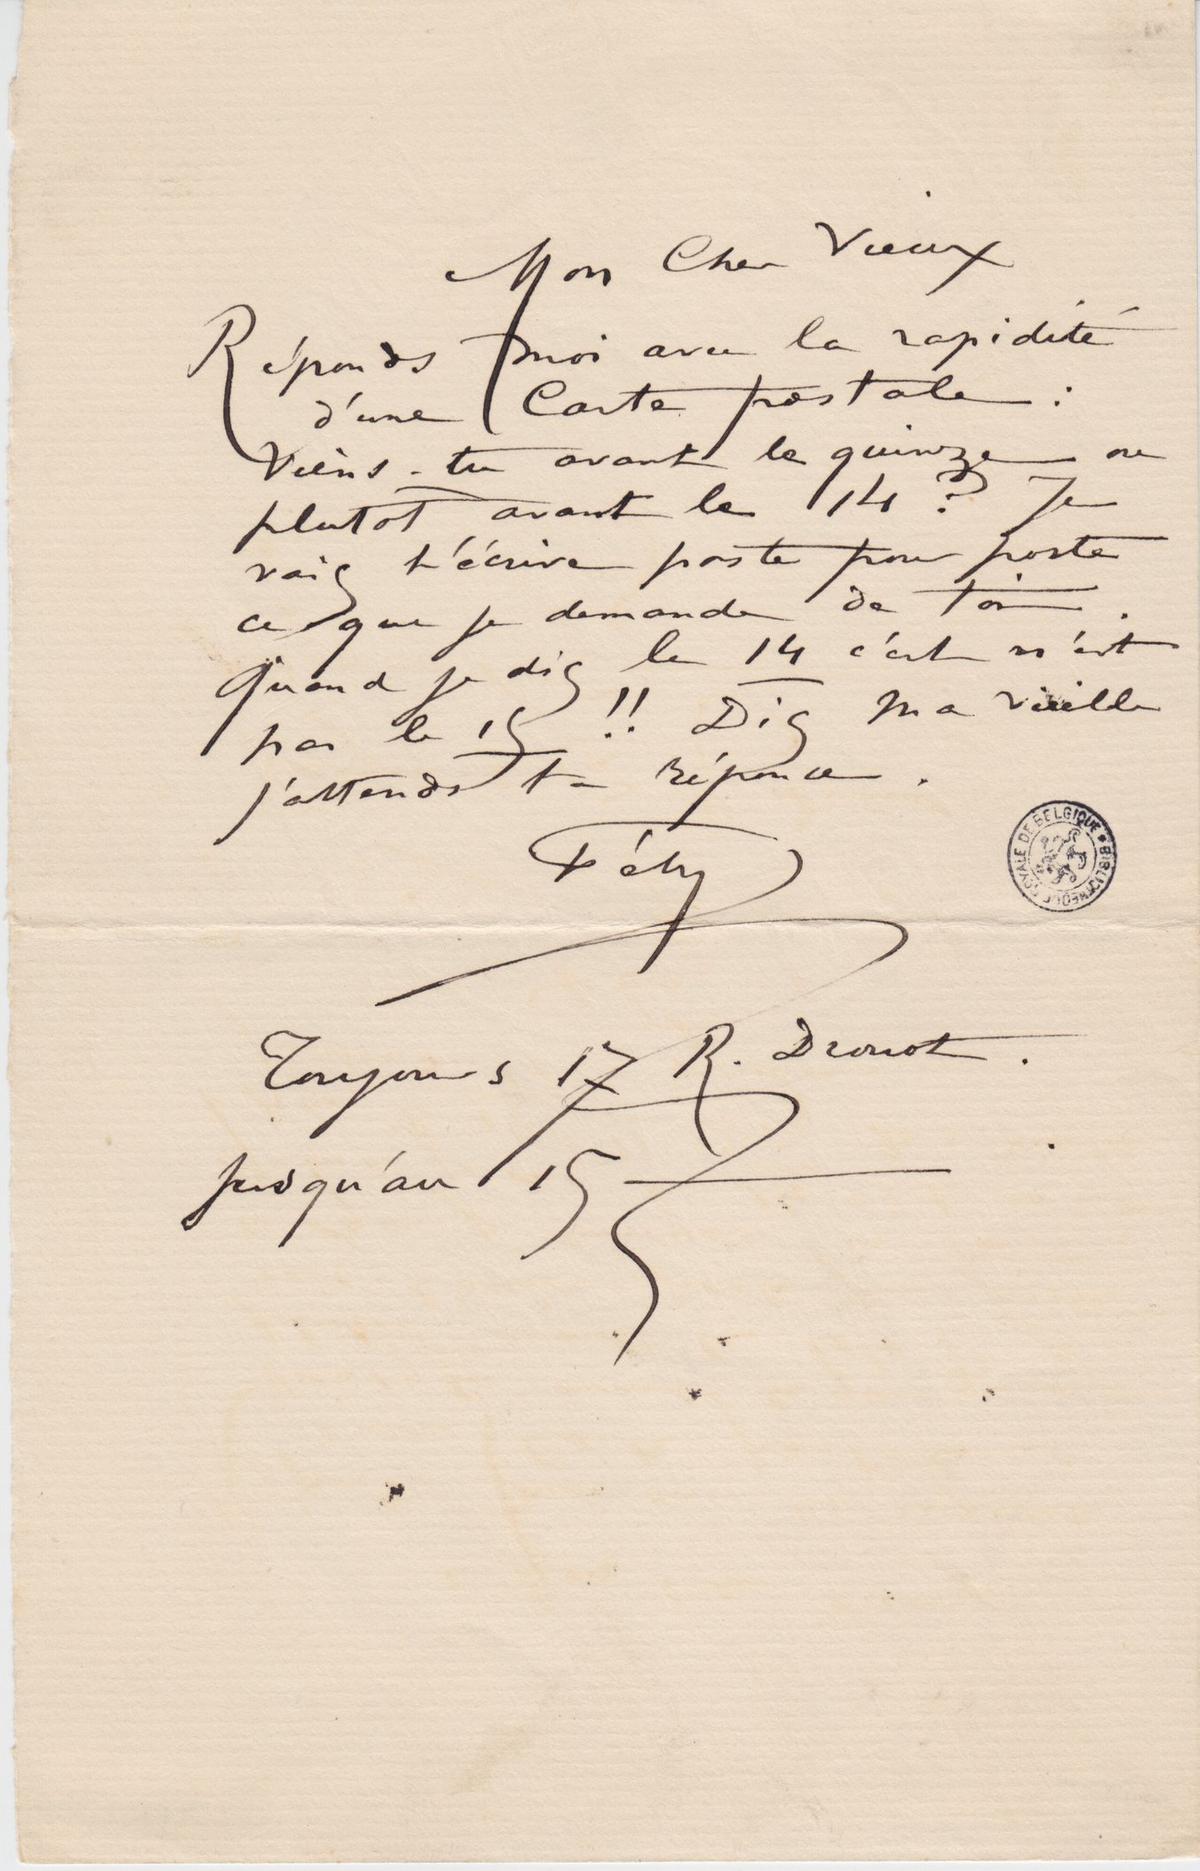 Mon Cher Vieux
Réponds moi avec la rapidité
d'une Carte postale :
Viens-tu avant le quinze ou
plutot avant le 14 ? Je
vais t'écrire poste pour poste
ce que je demande de toi.
Quand je dis le 14 c'est n'est
pas le 15 !! Dis ma vieille
j'attends ta réponce.
Fély
Toujours 17 R. Drouot.
jusqu'au 15
BIBLIOTHEQUE ROYALE DE BELGIQUE